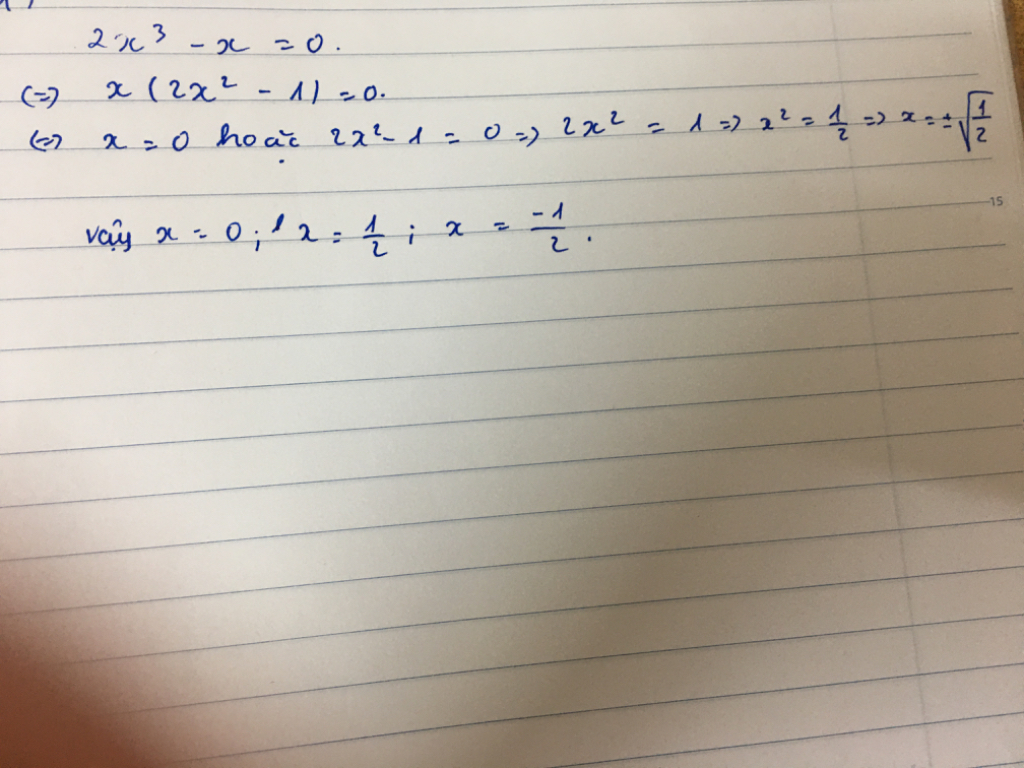 2x³ - x = 0.
(=) x (2x² - 1) = 0.
(=) x = 0 hoặc 2x² - 1 = 0 => 2x² = 1 => x² = 1/2 => x = ±√(1/2)
15
vậy x = 0 ; x = 1/2 ; x = -1/2 .